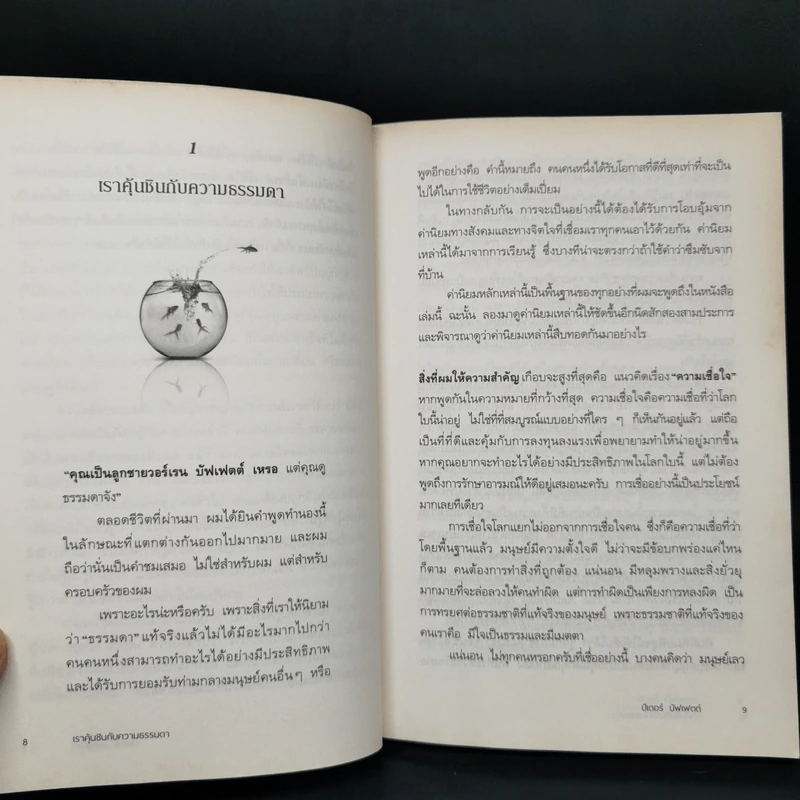 1
เราคุ้นชินกับความธรรมดา
“คุณเป็นลูกชายวอร์เรน บัฟเฟตต์ เหรอ แต่คุณดู
ธรรมดาจัง”
ตลอดชีวิตที่ผ่านมา ผมได้ยินคำพูดทำนองนี้
ในลักษณะที่แตกต่างกันออกไปมากมาย และผม
ถือว่านั่นเป็นคำชมเสมอ ไม่ใช่สำหรับผม แต่สำหรับ
ครอบครัวของผม
เพราะอะไรน่ะหรือครับ เพราะสิ่งที่เราให้นิยาม
ว่า “ธรรมดา” แท้จริงแล้วไม่ได้มีอะไรมากไปกว่า
คนคนหนึ่งสามารถทำอะไรได้อย่างมีประสิทธิภาพ
และได้รับการยอมรับท่ามกลางมนุษย์คนอื่นๆ หรือ
8 เราคุ้นชินกับความธรรมดา
พูดอีกอย่างคือ คำนี้หมายถึง คนคนหนึ่งได้รับโอกาสที่ดีที่สุดเท่าที่จะเป็น
ไปได้ในการใช้ชีวิตอย่างเต็มเปี่ยม
ในทางกลับกัน การจะเป็นอย่างนี้ได้ต้องได้รับการโอบอุ้มจาก
ค่านิยมทางสังคมและทางจิตใจที่เชื่อมเราทุกคนเอาไว้ด้วยกัน ค่านิยม
เหล่านี้ได้มาจากการเรียนรู้ ซึ่งบางทีน่าจะตรงกว่าถ้าใช้คำว่าซึมซับจาก
ที่บ้าน
ค่านิยมหลักเหล่านี้เป็นพื้นฐานของทุกอย่างที่ผมจะพูดถึงในหนังสือ
เล่มนี้ ฉะนั้น ลองมาดูค่านิยมเหล่านี้ให้ชัดขึ้นอีกนิดสักสองสามประการ
และพิจารณาดูว่าค่านิยมเหล่านี้สืบทอดกันมาอย่างไร
สิ่งที่ผมให้ความสำคัญ เกือบจะสูงที่สุดคือ แนวคิดเรื่อง “ความเชื่อใจ”
หากพูดกันในความหมายที่กว้างที่สุด ความเชื่อใจคือความเชื่อที่ว่าโลก
ใบนี้น่าอยู่ ไม่ใช่ที่ที่สมบูรณ์แบบอย่างที่ใคร ๆ ก็เห็นกันอยู่แล้ว แต่ถือ
เป็นที่ที่ดีและคุ้มกับการลงทุนลงแรงเพื่อพยายามทำให้น่าอยู่มากขึ้น
หากคุณอยากจะทำอะไรได้อย่างมีประสิทธิภาพในโลกใบนี้ แต่ไม่ต้อง
พูดถึงการรักษาอารมณ์ให้ดีอยู่เสมอนะครับ การเชื่ออย่างนี้เป็นประโยชน์
มากเลยทีเดียว
การเชื่อใจโลกแยกไม่ออกจากการเชื่อใจคน ซึ่งก็คือความเชื่อที่ว่า
โดยพื้นฐานแล้ว มนุษย์มีความตั้งใจดี ไม่ว่าจะมีข้อบกพร่องแค่ไหน
ก็ตาม คนต้องการทำสิ่งที่ถูกต้อง แน่นอน มีหลุมพรางและสิ่งยั่วยุ
มากมายที่จะล่อลวงให้คนทำผิด แต่การทำผิดเป็นเพียงการหลงผิด เป็น
การทรยศต่อธรรมชาติที่แท้จริงของมนุษย์ เพราะธรรมชาติที่แท้จริงของ
คนเราคือ มีใจเป็นธรรมและมีเมตตา
แน่นอน ไม่ทุกคนหรอกครับที่เชื่ออย่างนี้ บางคนคิดว่า มนุษย์เลว
ปีเตอร์ บัฟเฟตต์ 9